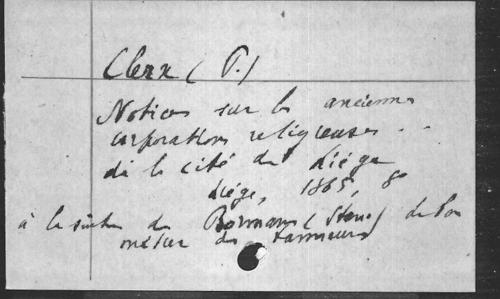 Clerx (P.)
Notices sur les anciennes
corporations religieuses . .
de la cité de Liége
Liége, 1865, 8°
à la suite de Bormans (Stan) de bon
métier des tanneurs